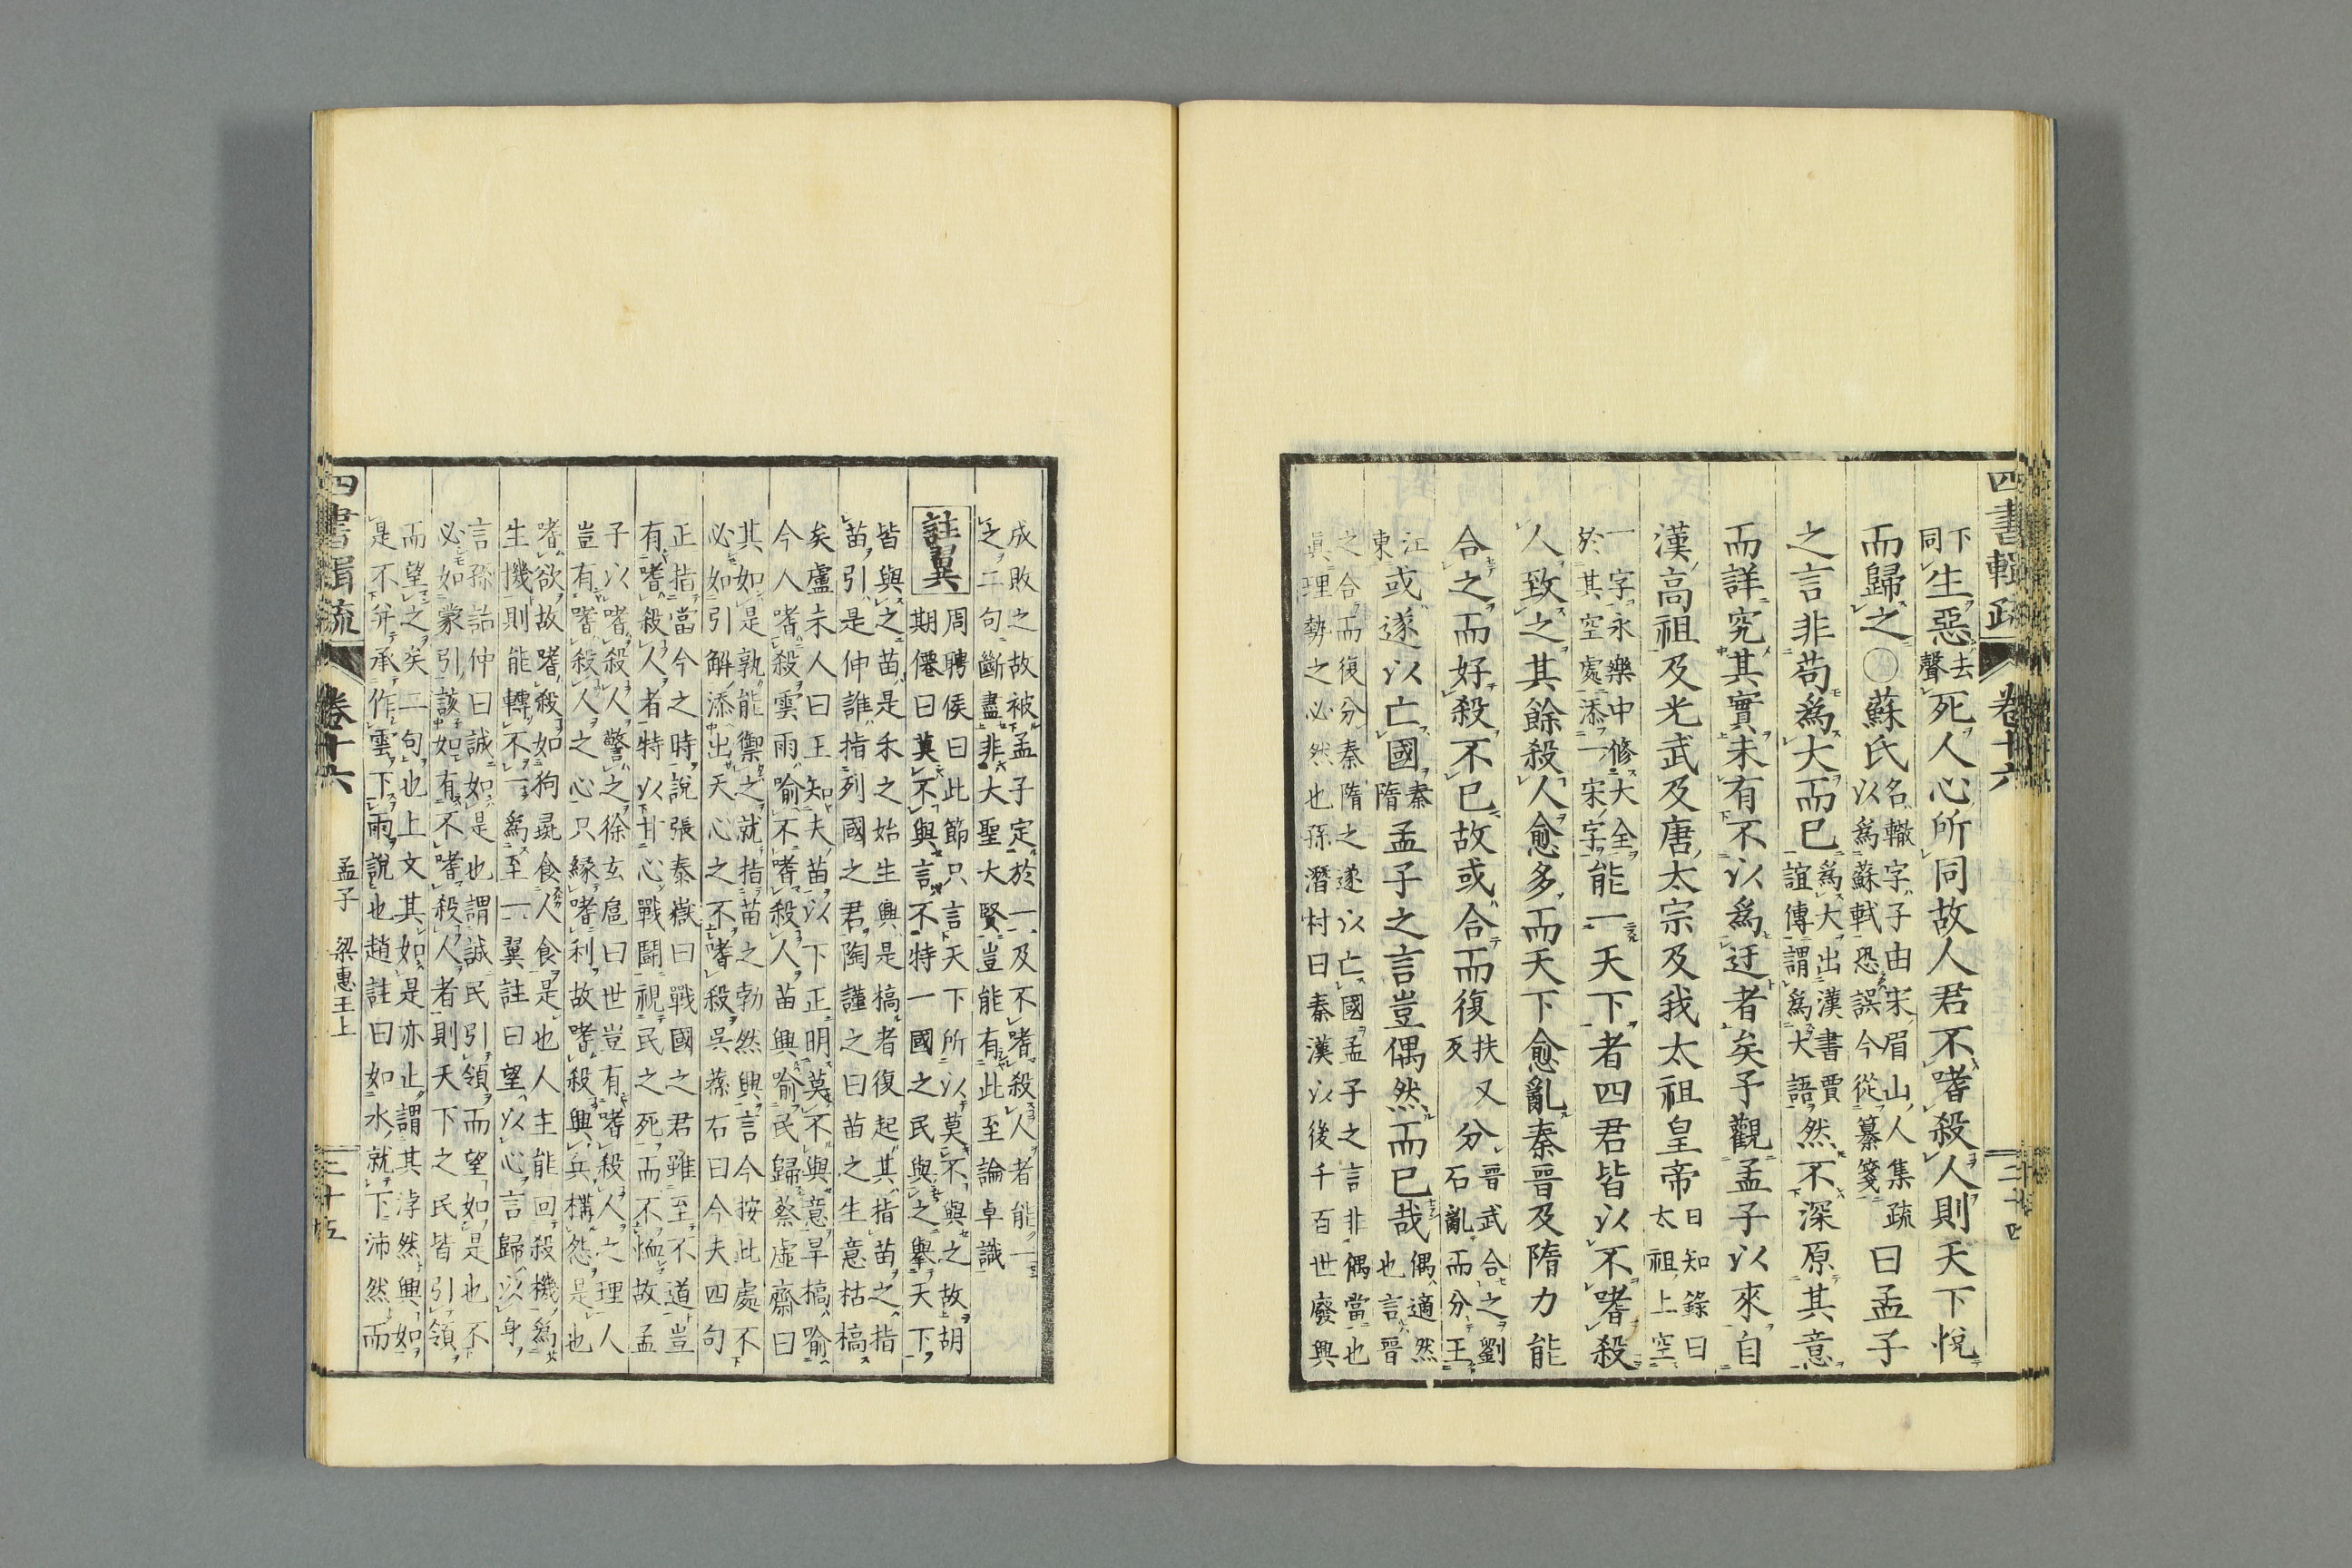 四書輯疏
卷十六
二十四
下同生惡去聲死人心所同故人君不嗜殺人則天下悅
而歸之〇蘇氏名轍字子由宋眉山人集疏以爲蘇軾恐誤今從纂箋曰孟子
之言非苟爲大而已爲大出漢書賈誼傳謂爲大語然不深原其意
而詳究其實未有不以爲迂者矣予觀孟子以來自
漢高祖及光武及唐太宗及我太祖皇帝日知錄曰太祖上空
一字永樂中修大全於其空處添一宋字能一天下者四君皆以不嗜殺
人致之其餘殺人愈多而天下愈亂秦晉及隋力能
合之而好殺不已故或合而復扶又反分晉武合之劉石亂而分王
江東或遂以亡國秦隋孟子之言豈偶然而已哉偶適然也言晉
之合而復分秦隋之遂以亡國孟子之言非偶當也
眞理勢之必然也孫潛村曰秦漢以後千百世廢興
成敗之故被孟子定於一及不嗜殺人者能一
之二句斷盡非大聖大賢豈能有此至論卓識
註翼
周聘侯曰此節只言天下所以莫不與之故胡
期僊曰莫不與言不特一國之民與之擧天下
皆與之苗是禾之始生興是槁者復起其指苗之指
苗引是仲誰指列國之君陶謹之曰苗之生意枯槁
矣盧未人曰王知夫苗以下正明莫不與意旱槁喻
今人嗜殺雲雨喻不嗜殺人苗興喻民歸蔡虛齋曰
其如是孰能禦之就指苗之勃然興言今按此處不
必如引解添出天心之不嗜殺吳蓀右曰今夫四句
正指當今之時說張泰嶽曰戰國之君雖至不道豈
有嗜殺人者特以甘心戰鬪視民之死而不恤故孟
子以嗜殺人警之徐玄扈曰世豈有嗜殺人之理人
豈有嗜殺人之心只緣嗜利故嗜殺興兵構怨是也
嗜欲故嗜殺如狗彘食人食是也人主能回殺機爲
生機則能轉不一爲至一翼註曰望以心言歸以身
言孫詒仲曰誠如是也謂誠民引領而望如是也不
必如蒙引該如有不嗜殺人者則天下之民皆引領
而望之矣二句也上文其如是亦止謂其浡然興如
是不幷承作雲下雨說也趙註曰如水就下沛然而
四書輯疏
卷十六
孟子 梁惠王上
二十五